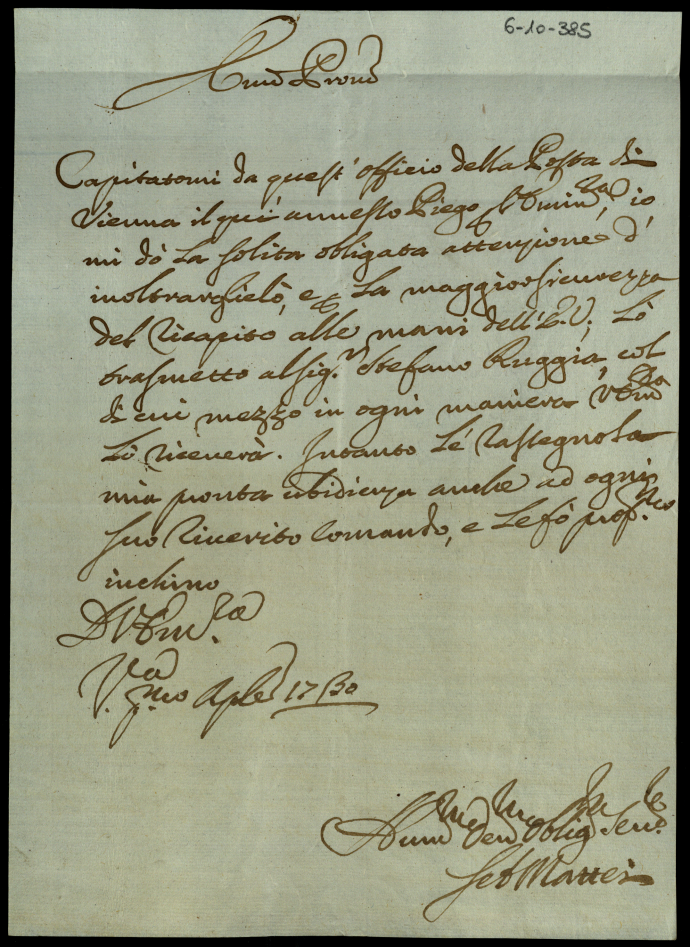 6-10-385
Em̃o Prone
Capitatomi da quest' officio della Posta di
Vienna il qui annesso Piego p V Emin.za, io
mi dò la solita obligata attenzione d'
inoltrarglielo, e p la maggior sicurezza
del ricapito alle mani dell' E.V., Lò
trasmetto al sig.r Stefano Ruggia, col
di cui mezzo in ogni maniera V Em.za
Lò riceverà. Intanto Lé rassegno la
mia pronta ubidienza anche ad ogni
suo riverito Comando, e Le fò prof.mo
inchino
D V Em.za
V.a p.mo Aple 1730
Hum.mo Dev.mo Oblig.mo Ser.e
Seb Mattei